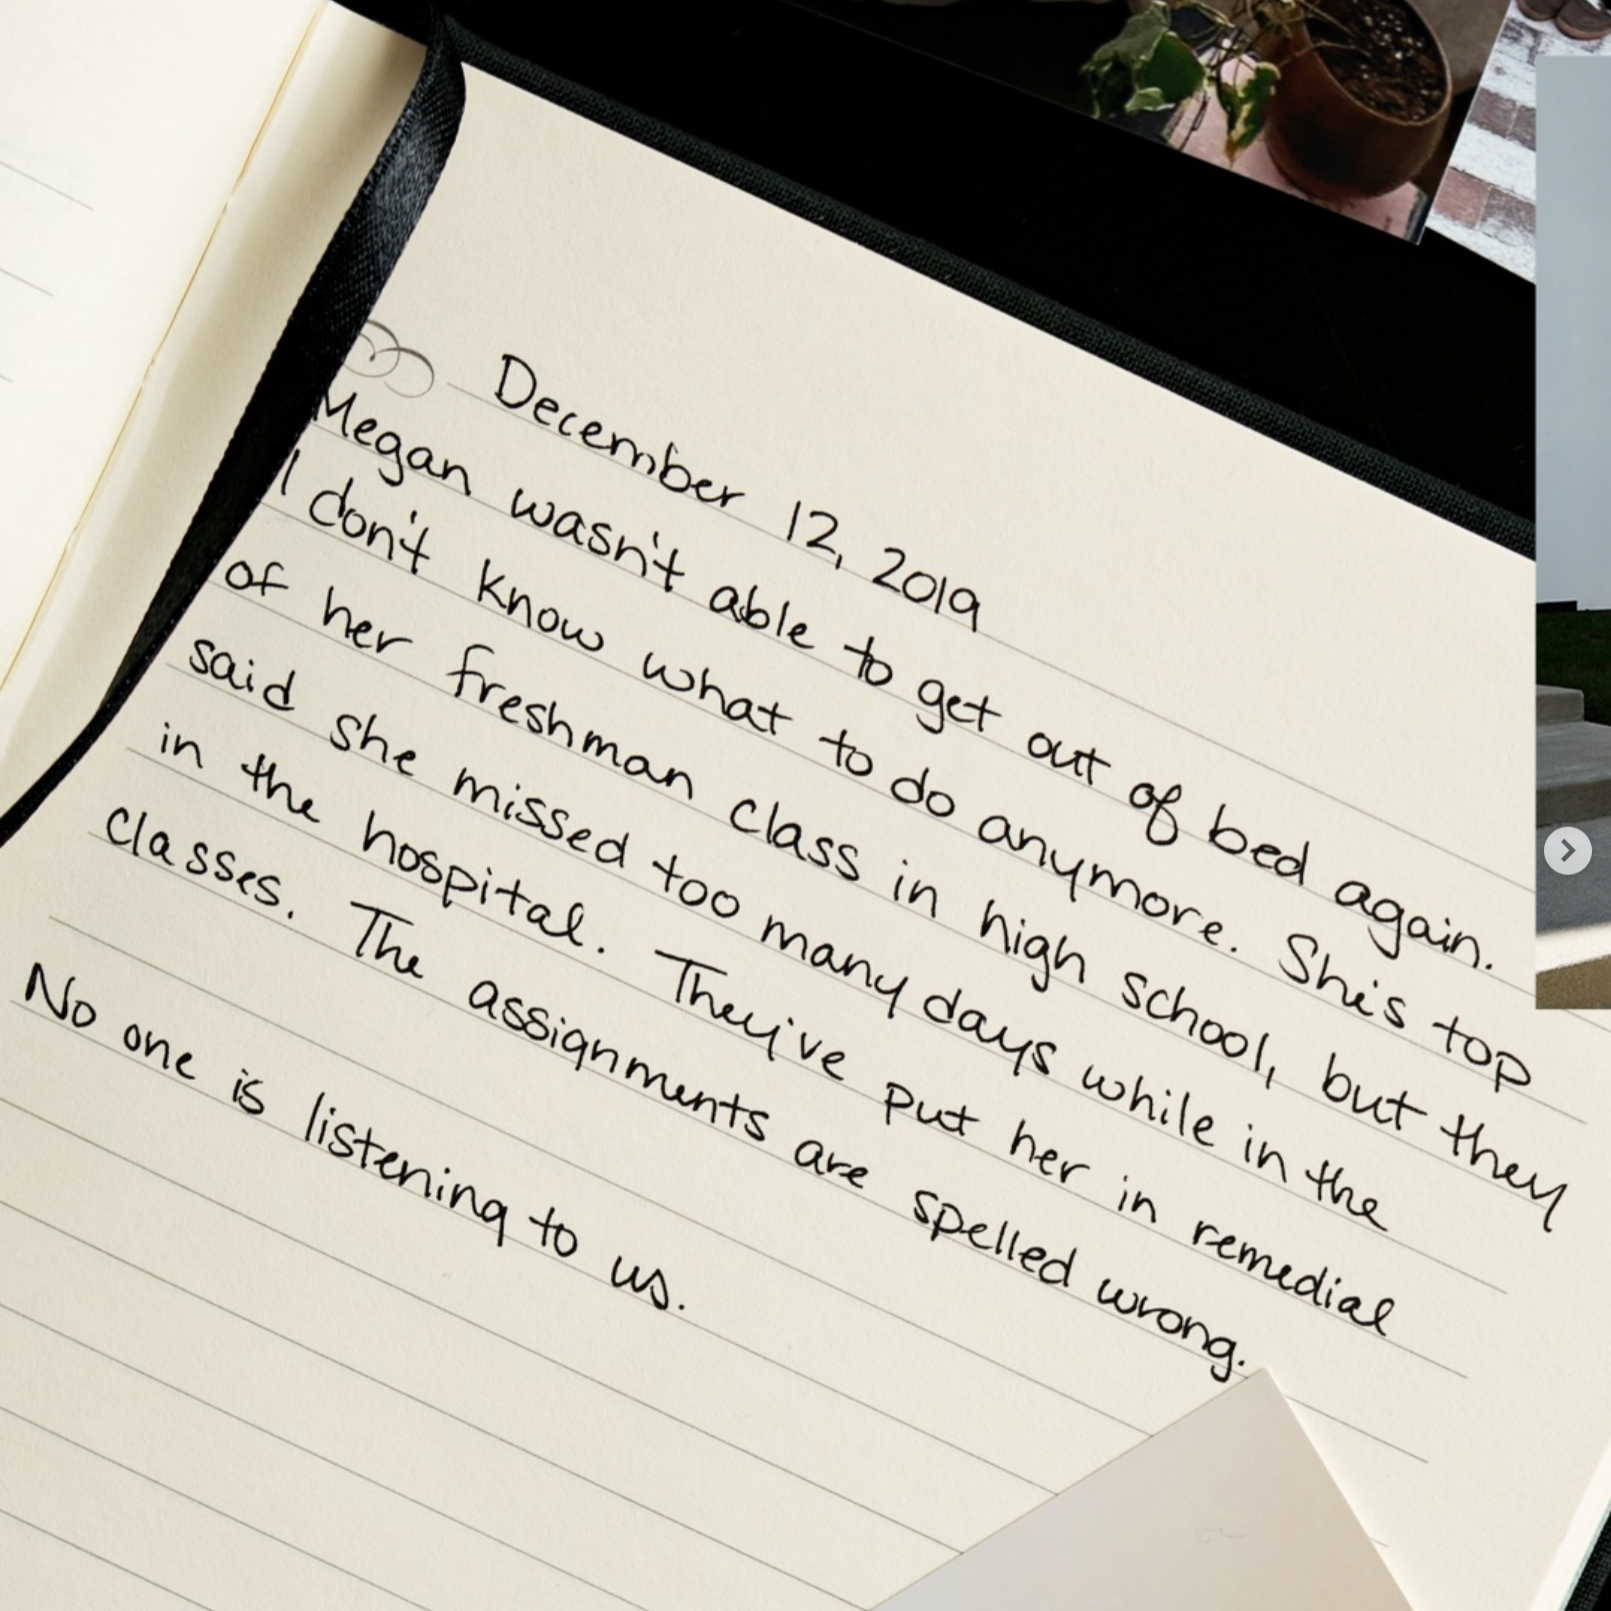 December 12, 2019
Megan wasn't able to get out of bed again.
I don't know what to do anymore. She's top
of her freshman class in high school, but they
said she missed too many days while in the
in the hospital. They've put her in remedial
classes. The assignments are spelled wrong.
No one is listening to us.